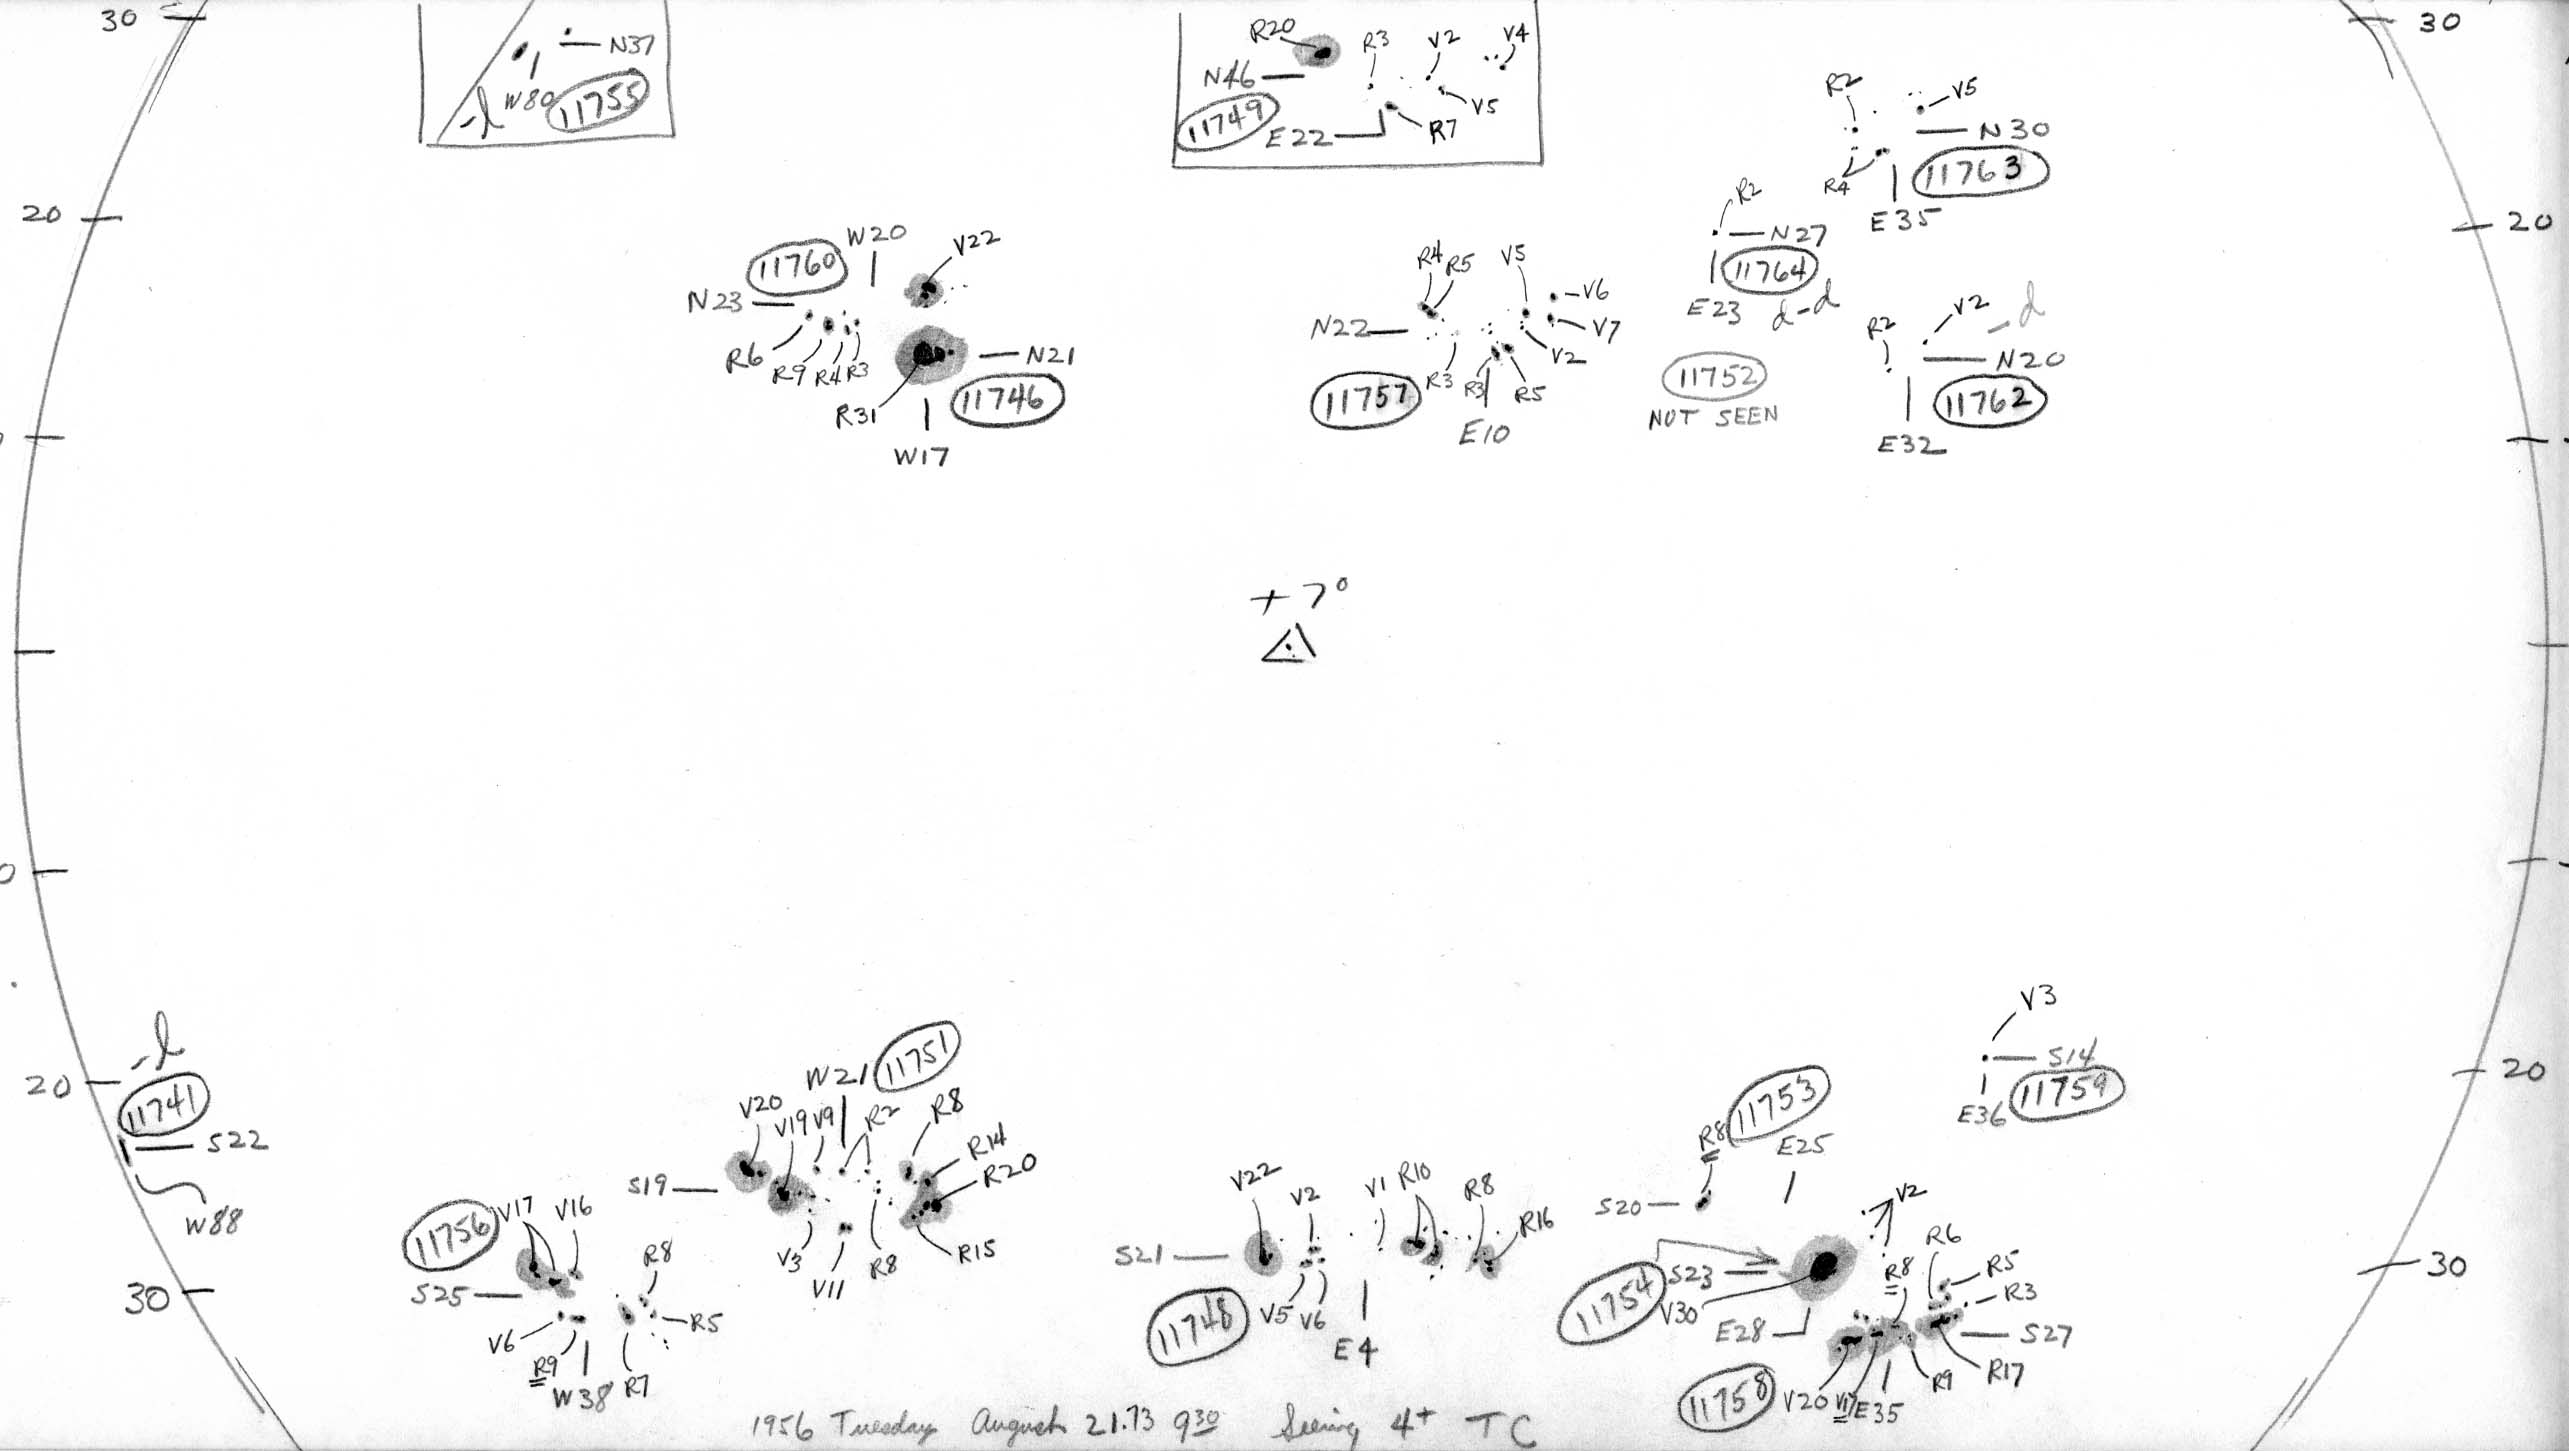 30
N37
W80
11755
-l
R20
R3
V2
V4
N46
11749
E22
R7
V5
30
R2
V5
N30
11763
R4
E35
20
W20
11760
V22
N23
R6
R9
R4
R3
N21
11746
R31
W17
R4
R5
V5
V6
V7
N22
V2
11757
R3
R3
R5
E10
R2
N27
11764
E23
d-d
11752
NOT SEEN
R2
V2
-d
N20
11762
E32
20
+7°
0
20
-l
11741
S22
W88
V3
S14
11759
E36
20
W21
11751
V20
V19
V9
R2
R8
R14
R20
S19
V3
V11
R8
R15
11756
V17
V16
R8
S25
V6
R9
W38
R7
R5
30
V22
V2
V1
R10
R8
R16
S21
V5
V6
11748
E4
R8
11753
E25
S20
V2
R6
R5
R3
R8
S23
11754
V30
E28
S27
R17
R9
11758
V20
V17
E35
30
1956 Tuesday August 21.73 9 30 Seeing 4+ TC